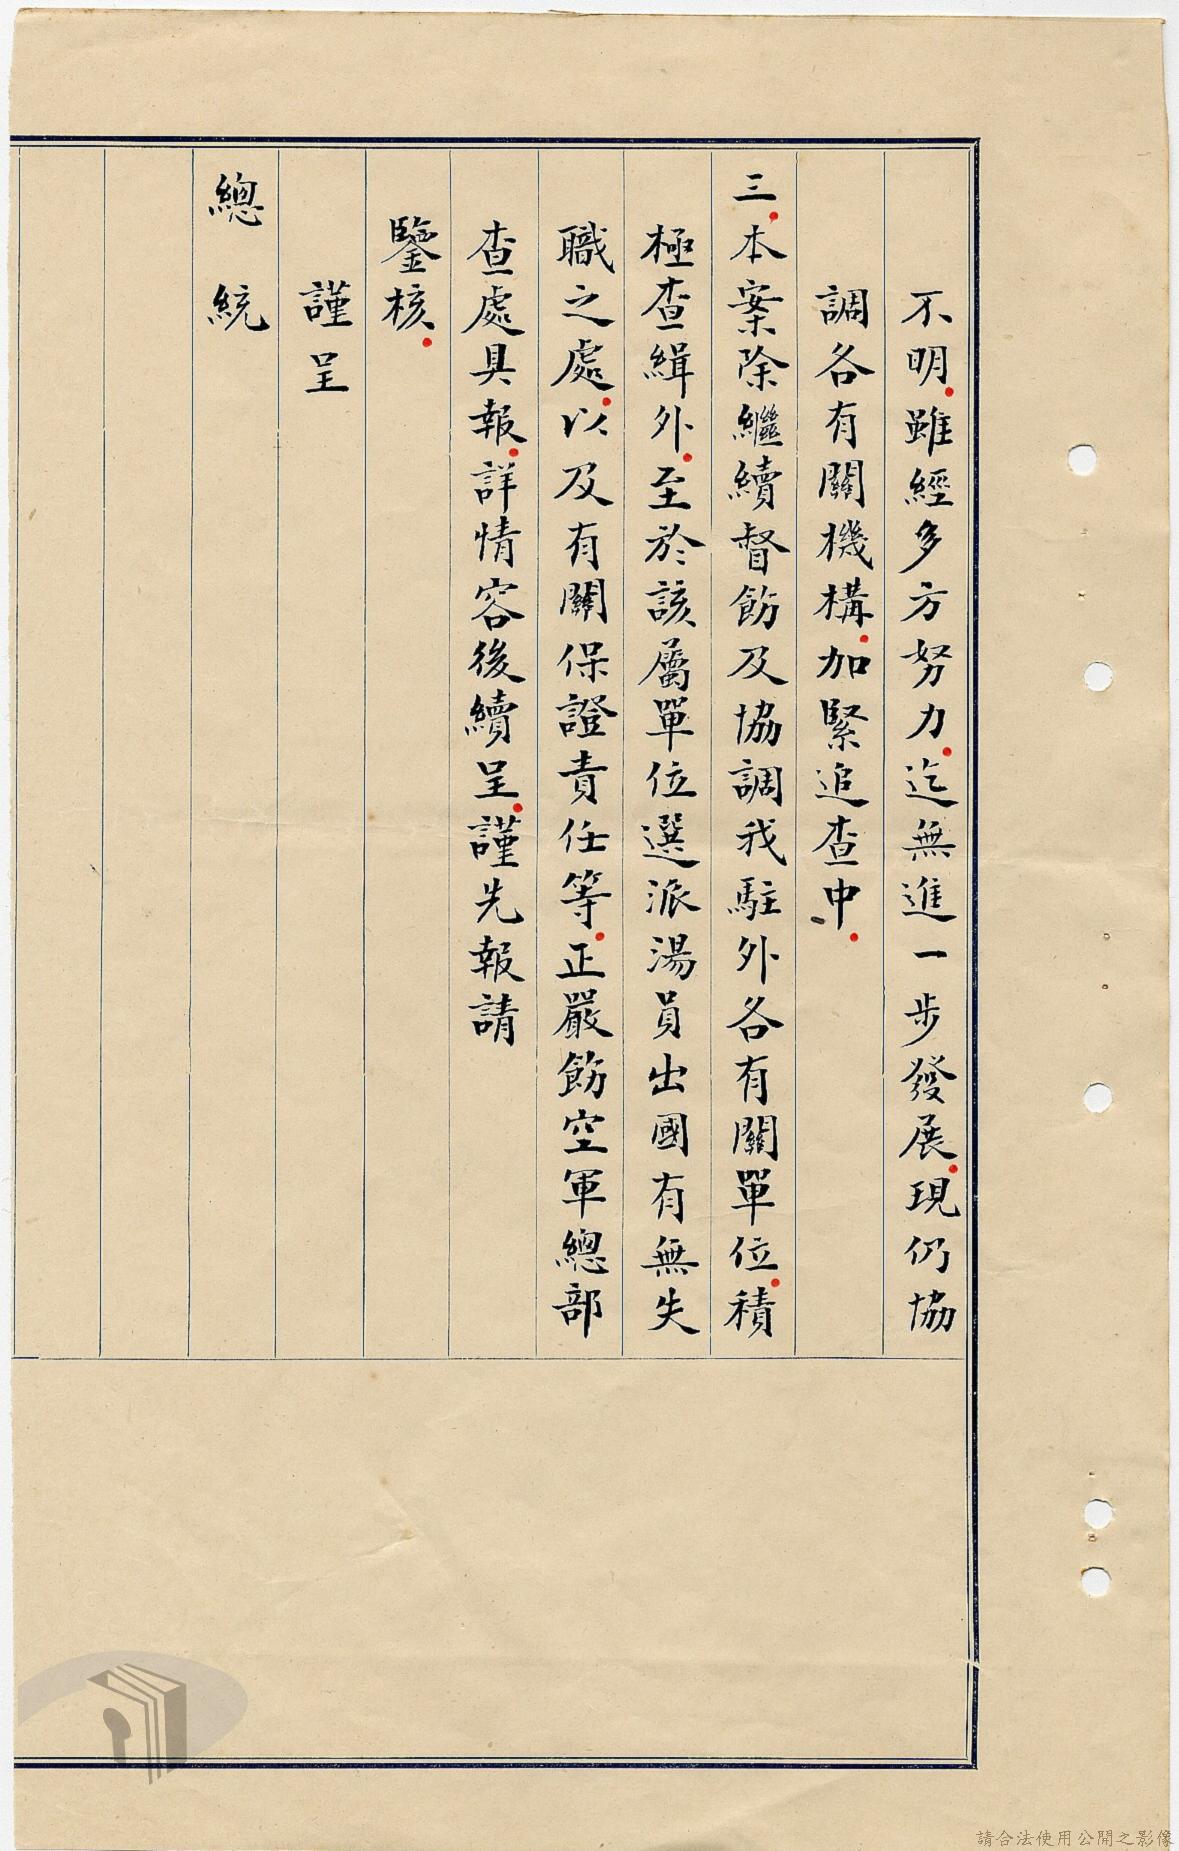 不明.雖經多方努力.迄無進一步發展.現仍協
調各有關機構.加緊追查中.
三.本案除繼續督飭及協調我駐外各有關單位.積
極查緝外.至於該屬單位選派湯員出國有無失
職之處.以及有關保證責任等.正嚴飭空軍總部
查處具報.詳情容後續呈.謹先報請
鑒核.
謹呈
總統
請合法使用公開之影像